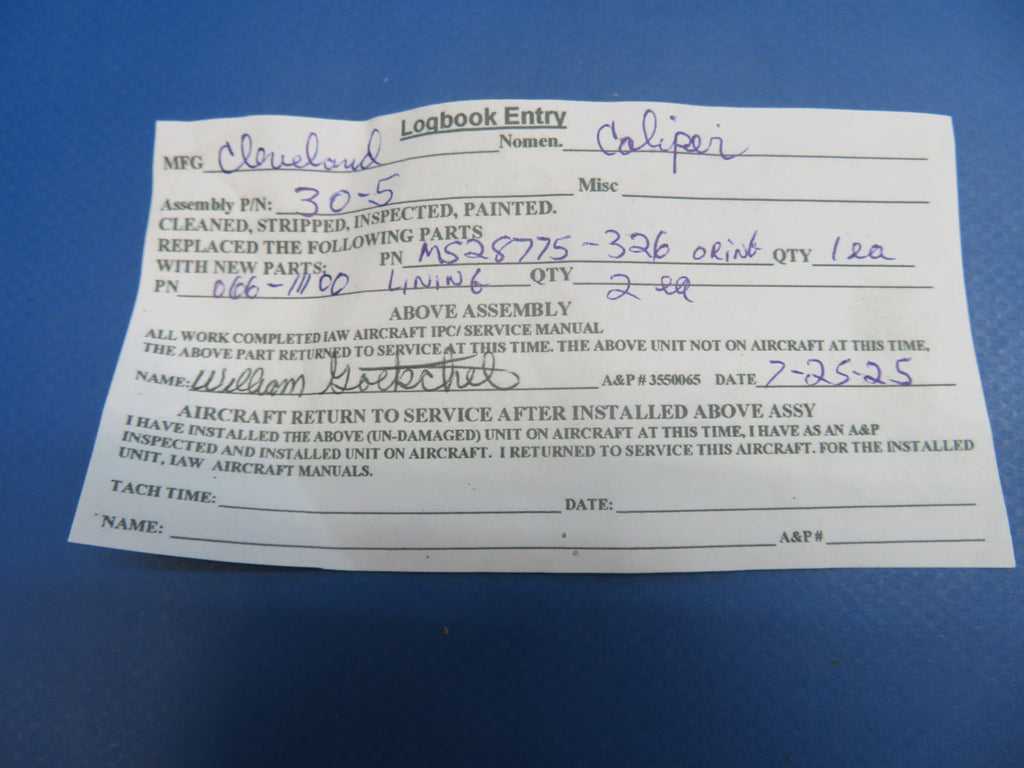 Logbook Entry
MFG Cleveland Nomen. Caliper
Assembly P/N: 30-5 Misc
CLEANED, STRIPPED, INSPECTED, PAINTED.
REPLACED THE FOLLOWING PARTS
WITH NEW PARTS: PN MS28775-326 ORING QTY 1 ea
PN 066-11100 LINING QTY 2 ea
ABOVE ASSEMBLY
ALL WORK COMPLETED IAW AIRCRAFT IPC/ SERVICE MANUAL
THE ABOVE PART RETURNED TO SERVICE AT THIS TIME. THE ABOVE UNIT NOT ON AIRCRAFT AT THIS TIME,
NAME: William A&P # 3550065 DATE 7-25-25
AIRCRAFT RETURN TO SERVICE AFTER INSTALLED ABOVE ASSY
I HAVE INSTALLED THE ABOVE (UN-DAMAGED) UNIT ON AIRCRAFT AT THIS TIME, I HAVE AS AN A&P
INSPECTED AND INSTALLED UNIT ON AIRCRAFT. I RETURNED TO SERVICE THIS AIRCRAFT. FOR THE INSTALLED
UNIT, IAW AIRCRAFT MANUALS.
TACH TIME: DATE:
NAME: A&P #